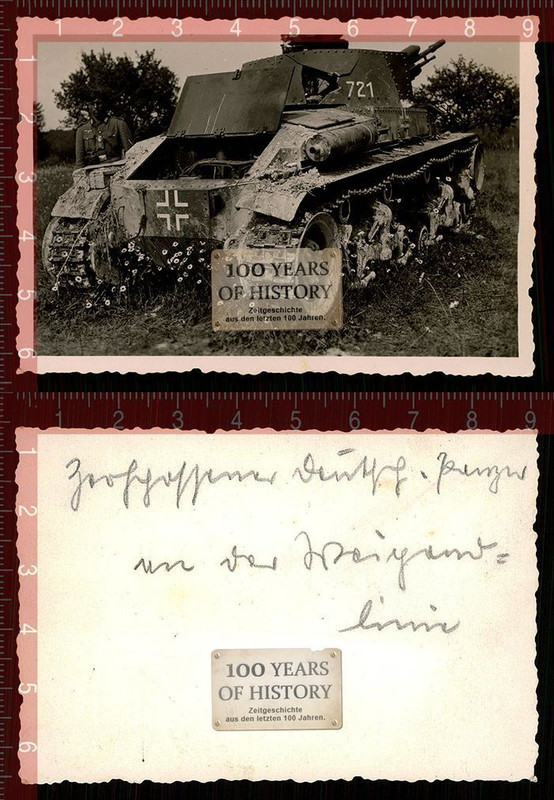 1 2 3 4 5 6 7 8 9
1
2
3
4
5
6
721
100 YEARS
OF HISTORY
Zeitgeschichte
aus den letzten 100 Jahren.
1 2 3 4 5 6 7 8 9
2
3
4
5
6
Zerschossener deutsch. Panzer
an der Weigand=
linie
100 YEARS
OF HISTORY
Zeitgeschichte
aus den letzten 100 Jahren.